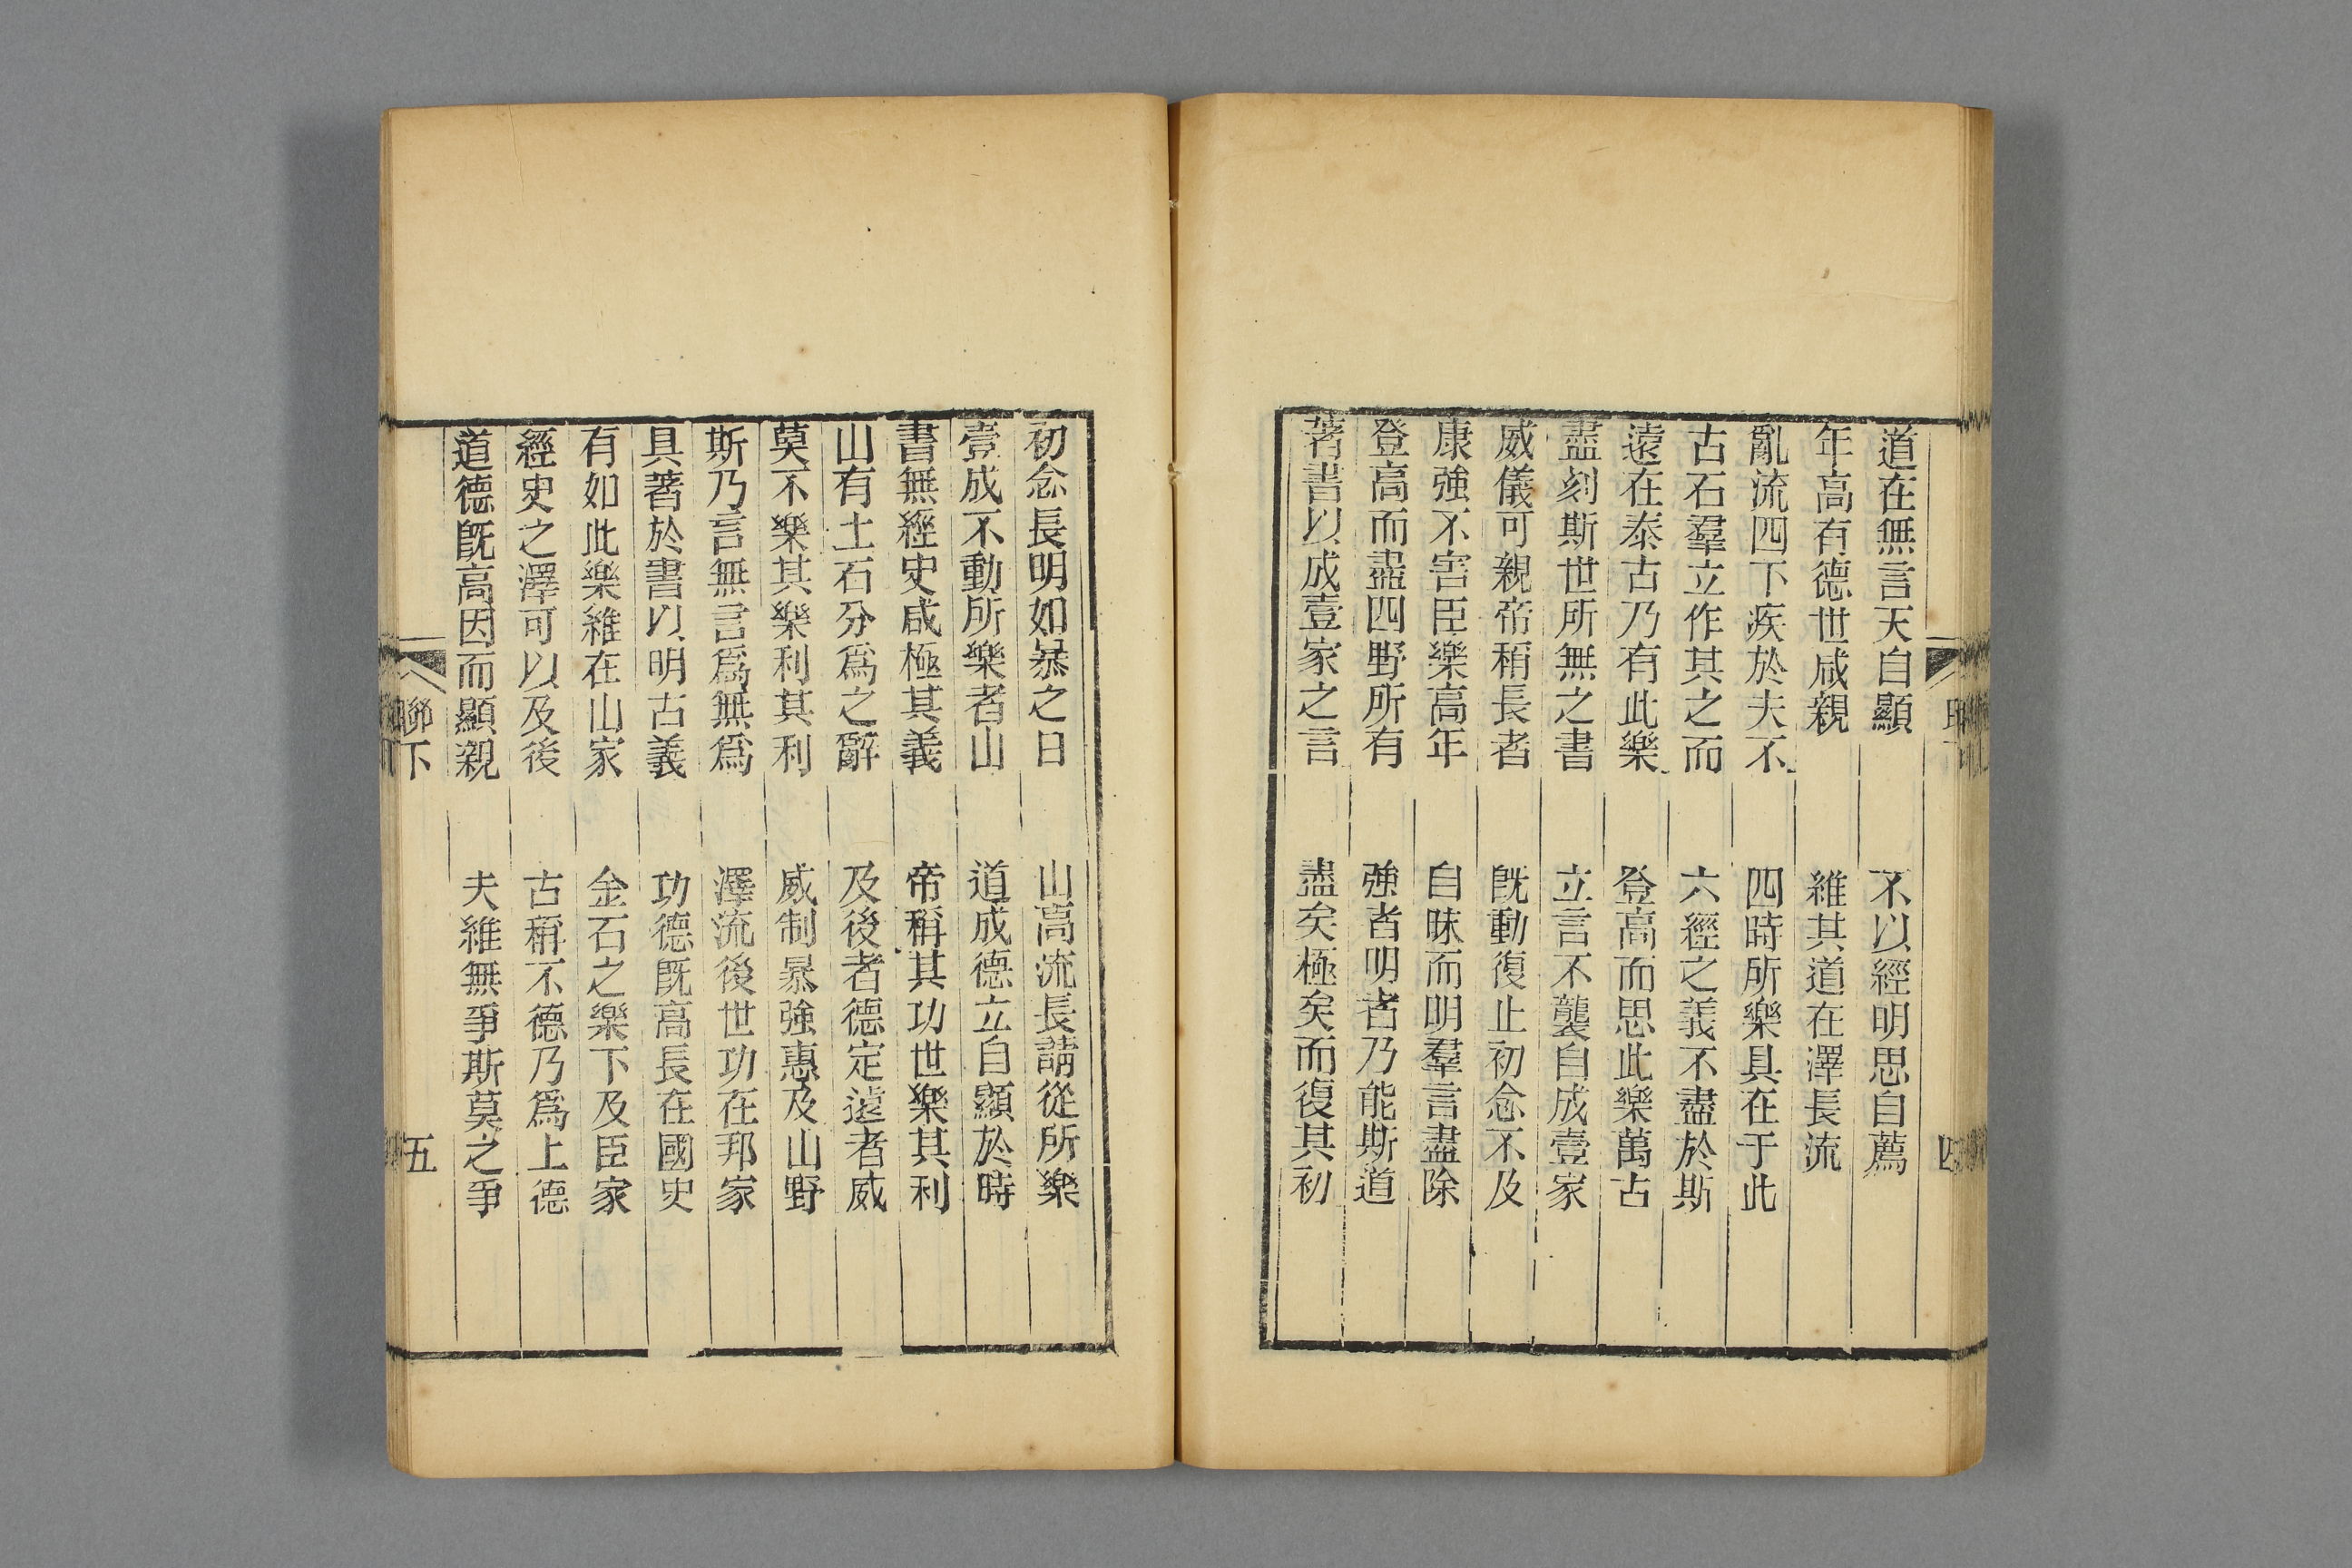 道在無言天自顯　不以經明思自薦
年高有德世咸親　維其道在澤長流
亂流四下疾於夫不　四時所樂具在于此
古石羣立作其之而　六經之義不盡於斯
遠在泰古乃有此樂　登高而思此樂萬古
盡刻斯世所無之書　立言不襲自成壹家
威儀可親帝稱長者　旣動復止初念不及
康強不害臣樂高年　自昧而明羣言盡除
登高而盡四野所有　強者明者乃能斯道
著書以成壹家之言　盡矣極矣而復其初
初念長明如㬥之日　山高流長請從所樂
壹成不動所樂者山　道成德立自顯於時
書無經史咸極其義　帝稱其功世樂其利
山有土石分爲之辭　及後者德定遠者威
莫不樂其樂利其利　威制㬥強惠及山野
斯乃言無言爲無爲　澤流後世功在邦家
具著於書以明古義　功德旣高長在國史
有如此樂維在山家　金石之樂下及臣家
經史之澤可以及後　古稱不德乃爲上德
道德旣高因而顯親　夫維無爭斯莫之爭
聯下
五